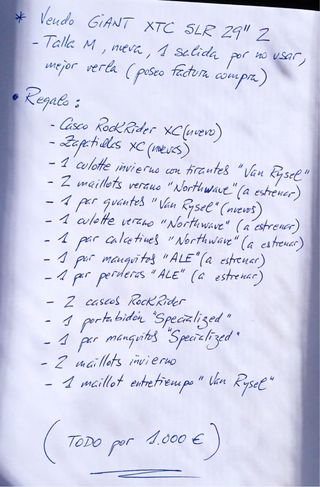 * Vendo GIANT XTC SLR 29" 2
- Talla M, nueva, 1 salida por no usar,
mejor verla (poseo factura compra)
• Regalo:
- Casco RockRider XC (nuevo)
- Zapatillas XC (nuevas)
- 1 culotte invierno con tirantes "Van Rysel"
- 2 maillots verano "Northwave" (a estrenar)
- 1 par guantes "Van Rysel" (nuevos)
- 1 culotte verano "Northwave" (a estrenar)
- 1 par calcetines "Northwave" (a estrenar)
- 1 par manguitos "ALE" (a estrenar)
- 1 par perneras "ALE" (a estrenar)
- 2 cascos RockRider
- 1 portabidón "Specialized"
- 1 par manguitos "Specialized"
- 2 maillots invierno
- 1 maillot entretiempo "Van Rysel"
(TODO por 1.000 €)